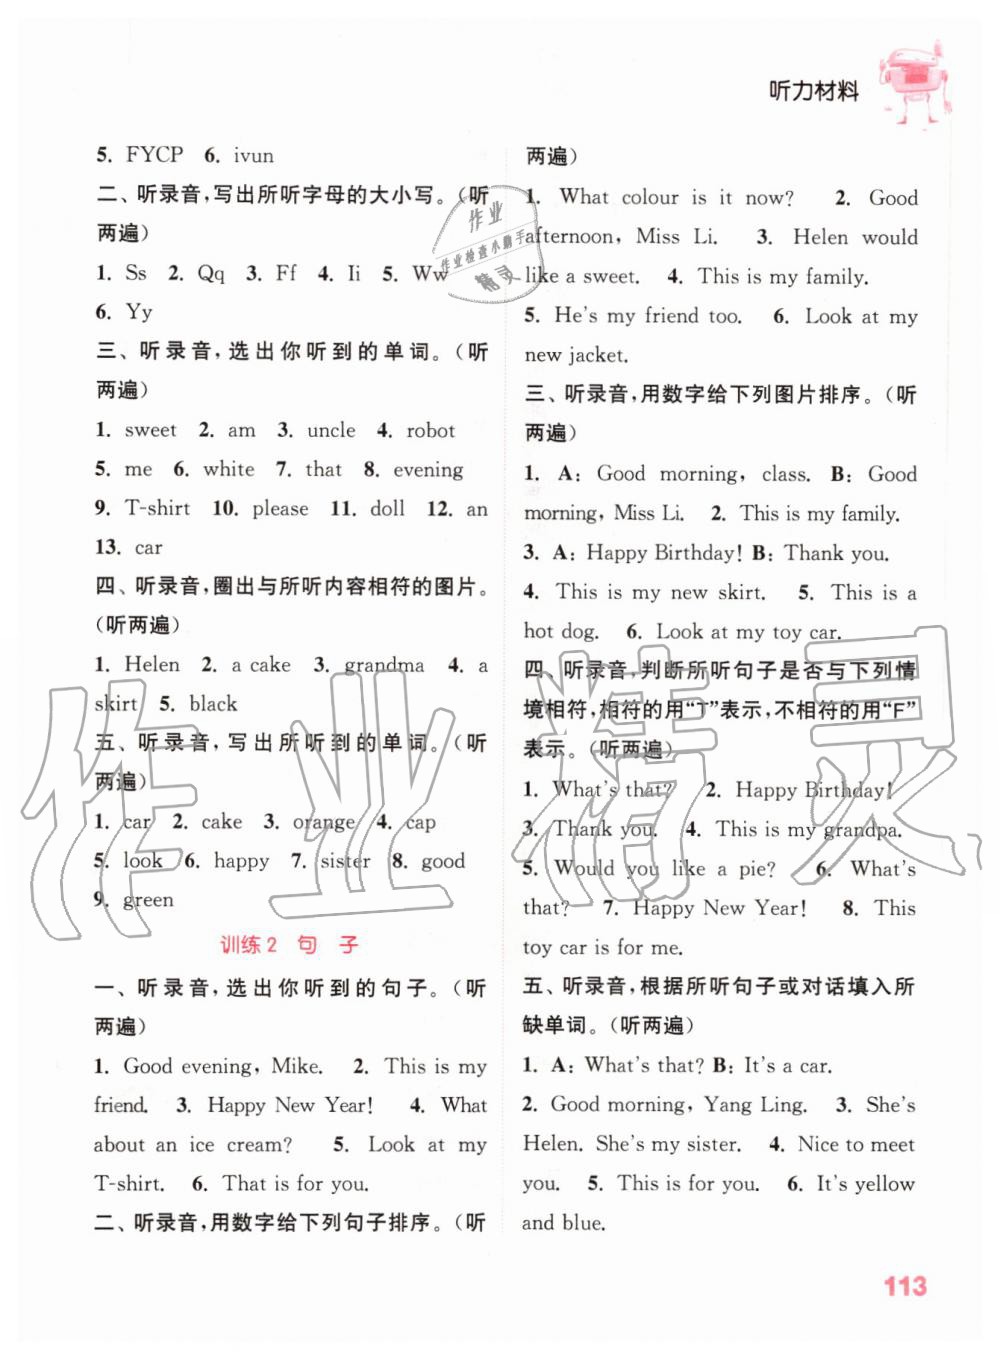 听力材料
5. FYCP 6. ivun
二、听录音,写出所听字母的大小写。(听
两遍)
1. Ss 2. Qq 3. Ff 4. Ii 5. Ww
6. Yy
三、听录音,选出你听到的单词。(听
两遍)
1. sweet 2. am 3. uncle 4. robot
5. me 6. white 7. that 8. evening
9. T-shirt 10. please 11. doll 12. an
13. car
四、听录音,圈出与所听内容相符的图片。
(听两遍)
1. Helen 2. a cake 3. grandma 4. a
skirt 5. black
五、听录音,写出所听到的单词。(听
两遍)
1. car 2. cake 3. orange 4. cap
5. look 6. happy 7. sister 8. good
9. green
训练2 句 子
一、听录音,选出你听到的句子。(听
两遍)
1. Good evening, Mike. 2. This is my
friend. 3. Happy New Year! 4. What
about an ice cream? 5. Look at my
T-shirt. 6. That is for you.
二、听录音,用数字给下列句子排序。(听
两遍)
1. What colour is it now? 2. Good
afternoon, Miss Li. 3. Helen would
like a sweet. 4. This is my family.
5. He's my friend too. 6. Look at my
new jacket.
三、听录音,用数字给下列图片排序。(听
两遍)
1. A: Good morning, class. B: Good
morning, Miss Li. 2. This is my family.
3. A: Happy Birthday! B: Thank you.
4. This is my new skirt. 5. This is a
hot dog. 6. Look at my toy car.
四、听录音,判断所听句子是否与下列情
境相符,相符的用“T”表示,不相符的用“F”
表示。(听两遍)
1. What's that? 2. Happy Birthday!
3. Thank you. 4. This is my grandpa.
5. Would you like a pie? 6. What's
that? 7. Happy New Year! 8. This
toy car is for me.
五、听录音,根据所听句子或对话填入所
缺单词。(听两遍)
1. A: What's that? B: It's a car.
2. Good morning, Yang Ling. 3. She's
Helen. She's my sister. 4. Nice to meet
you. 5. This is for you. 6. It's yellow
and blue.
113
作业
作业检查小助手
精灵
作业精灵